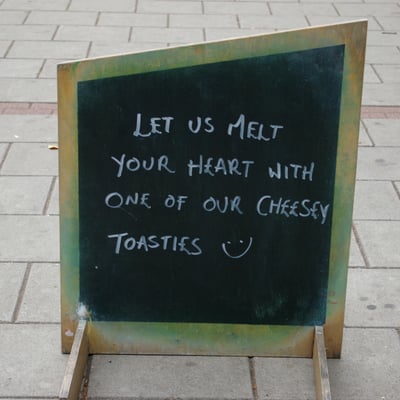 LET US MELT
YOUR HEART WITH
ONE OF OUR CHEESEY
TOASTIES